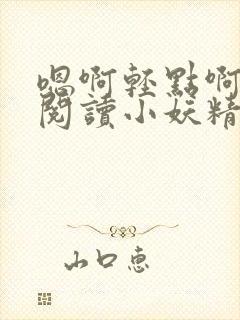 嗯啊輕點啊
閱讀小妖精
山口惠